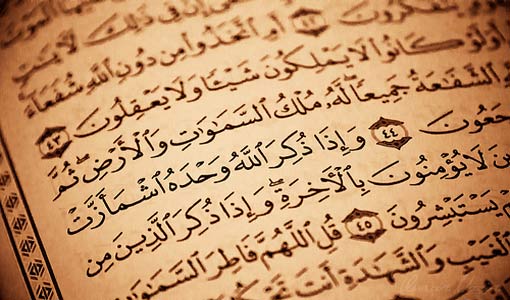 فِى ذَٰلِكَ لَـَٔايَـٰتٍ
يَتَفَكَّرُونَ ٤٢ أَمِ ٱتَّخَذُوا۟ مِن دُونِ ٱللَّهِ شُفَعَآءَ
أَوَلَوْ كَانُوا۟ لَا يَمْلِكُونَ شَيْـًٔا وَلَا يَعْقِلُونَ ٤٣
ٱلشَّفَـٰعَةُ جَمِيعًا لَّهُۥ مُلْكُ ٱلسَّمَـٰوَٰتِ وَٱلْأَرْضِ ثُمَّ
جَعُونَ ٤٤ وَإِذَا ذُكِرَ ٱللَّهُ وَحْدَهُ ٱشْمَأَزَّتْ
ينَ لَا يُؤْمِنُونَ بِٱلْـَٔاخِرَةِ وَإِذَا ذُكِرَ ٱلَّذِينَ مِن
هُمْ يَسْتَبْشِرُونَ ٤٥ قُلِ ٱللَّهُمَّ فَاطِرَ ٱلسَّمَـٰوَٰ
ٱلْغَيْبِ وَٱلشَّهَـٰدَةِ أَنتَ تَحْكُمُ